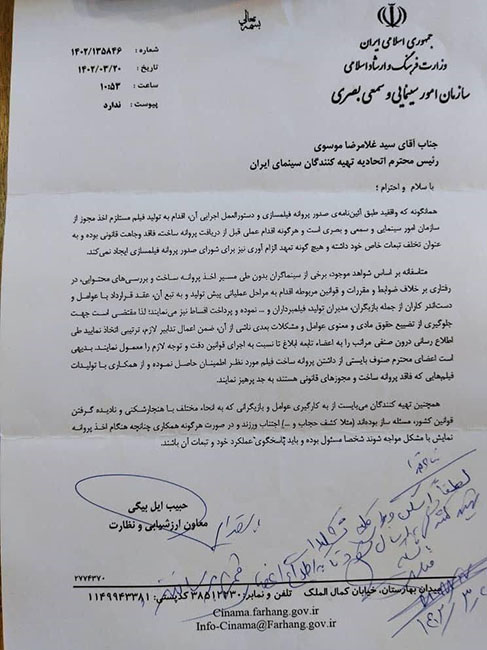 بسمه تعالی
جمهوری اسلامی ایران
وزارت فرهنگ و ارشاد اسلامی
سازمان امور سینمایی و سمعی بصری
شماره : ۱۴۰۲/۱۳۵۸۴۶
تاریخ : ۱۴۰۲/۰۳/۲۰
ساعت : ۱۰:۵۳
پیوست : ندارد
جناب آقای سید غلامرضا موسوی
رئیس محترم اتحادیه تهیه کنندگان سینمای ایران
با سلام و احترام ؛
همانگونه که واقفید طبق آئین‌نامه‌ی صدور پروانه فیلمسازی و دستورالعمل اجرایی آن، اقدام به تولید فیلم مستلزم اخذ مجوز از
سازمان امور سینمایی و سمعی و بصری است و هرگونه اقدام عملی قبل از دریافت پروانه ساخت، فاقد وجاهت قانونی بوده و به
عنوان تخلف تبعات خاص خود داشته و هیچ گونه تعهد الزام آوری نیز برای شورای صدور پروانه فیلمسازی ایجاد نمی‌کند.
متاسفانه بر اساس شواهد موجود، برخی از سینماگران بدون طی مسیر اخذ پروانه ساخت و بررسی‌های محتوایی، در
رفتاری بر خلاف ضوابط و مقررات و قوانین مربوطه اقدام به مراحل عملیاتی پیش تولید و به تبع آن، عقد قرارداد با عوامل و
دست‌اندر کاران از جمله بازیگران، مدیران تولید، فیلمبرداران و ... نموده و پرداخت اقساط نیز می‌نمایند؛ لذا مقتضی است جهت
جلوگیری از تضییع حقوق مادی و معنوی عوامل و مشکلات بعدی ناشی از آن، ضمن اعمال تدابیر لازم، ترتیبی اتخاذ نمایید طی
اطلاع رسانی درون صنفی مراتب را به اعضاء تابعه ابلاغ تا نسبت به اجرای قوانین دقت و توجه لازم را معمول نمایند. بدیهی
است اعضای محترم صنوف بایستی از داشتن پروانه ساخت فیلم مورد نظر اطمینان حاصل نموده و از همکاری با تولیدات
فیلم‌هایی که فاقد پروانه ساخت و مجوزهای قانونی هستند، به جد پرهیز نمایند.
همچنین تهیه کنندگان می‌بایست از به کارگیری عوامل و بازیگرانی که به انحاء مختلف با هنجارشکنی و نادیده گرفتن
قوانین کشور، مسئله ساز بوده‌اند (مثلا کشف حجاب و ...) اجتناب ورزند و در صورت هرگونه همکاری چنانچه هنگام اخذ پروانه
نمایش با مشکل مواجه شوند شخصا مسئول بوده و باید پاسخگوی عملکرد خود و تبعات آن باشند.
حبیب ایل بیگی
معاون ارزشیابی و نظارت
۲۷۷۴۳۷۰
میدان بهارستان، خیابان کمال الملک تلفن و نمابر: ۳۸۵۱۲۲۳۰ کدپستی: ۱۱۴۹۹۴۳۳۸۱
Cinama.farhang.gov.ir
Info-Cinama@Farhang.gov.ir